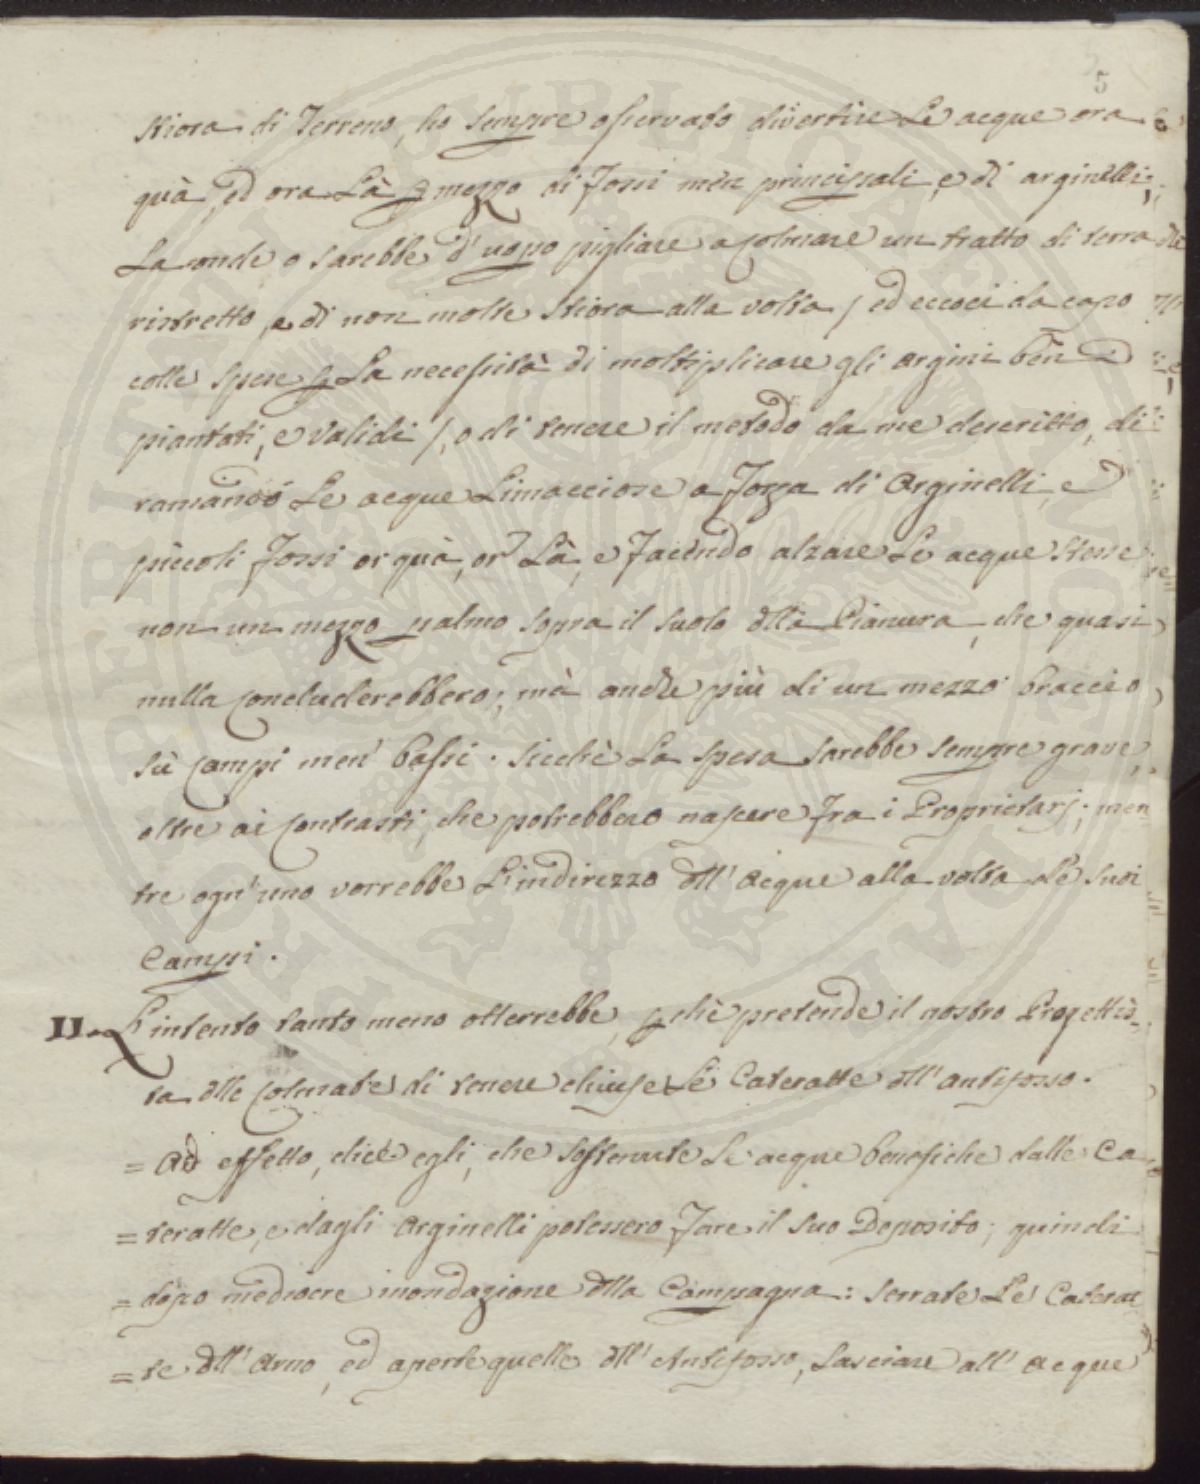 5
stiora di Terreno, ho sempre osservato divertire Le acque ora
quà, ed ora Là p mezzo di Fossi men principali, e di arginelli;
La onde o sarebbe d'uopo pigliare a colmare un tratto di terra
ristretto, e di non molte stiora alla volta / ed eccoci da capo
colle spese p La necessità di moltiplicare gli argini ben
piantati, e validi /, o di tenere il metodo da me descritto, di
ramando Le acque Limacciose a Forza di Arginelli, e
piccoli Fossi or quà, or Là, e Facendo alzare Le acque stesse
non un mezzo palmo sopra il suolo dlla Pianura, che quasi
nulla concluderebbero; mà anche più di un mezzo braccio
sù campi men' bassi. Sicchè La spesa sarebbe sempre grave,
oltre ai contrasti, che potrebbero nascere Fra i Proprietarj; men
tre ogn'uno vorrebbe L'indirizzo dll' acque alla volta de suoi
Campi.
II. L'intento tanto meno otterrebbe, p chè pretende il nostro Progettis=
ta dlle colmate di tenere chiuse Le Cateratte dll'antifosso.
= Ad effetto, dice egli, che sostenute Le acque benefiche dalle Ca
= teratte, e dagli Arginelli potessero Fare il suo Deposito; quindi
= dopo mediocre inondazione dlla Campagna: serrate Le Caterat
= te dll' Arno, ed aperte quelle dll' Antifosso, Lasciare all' acque